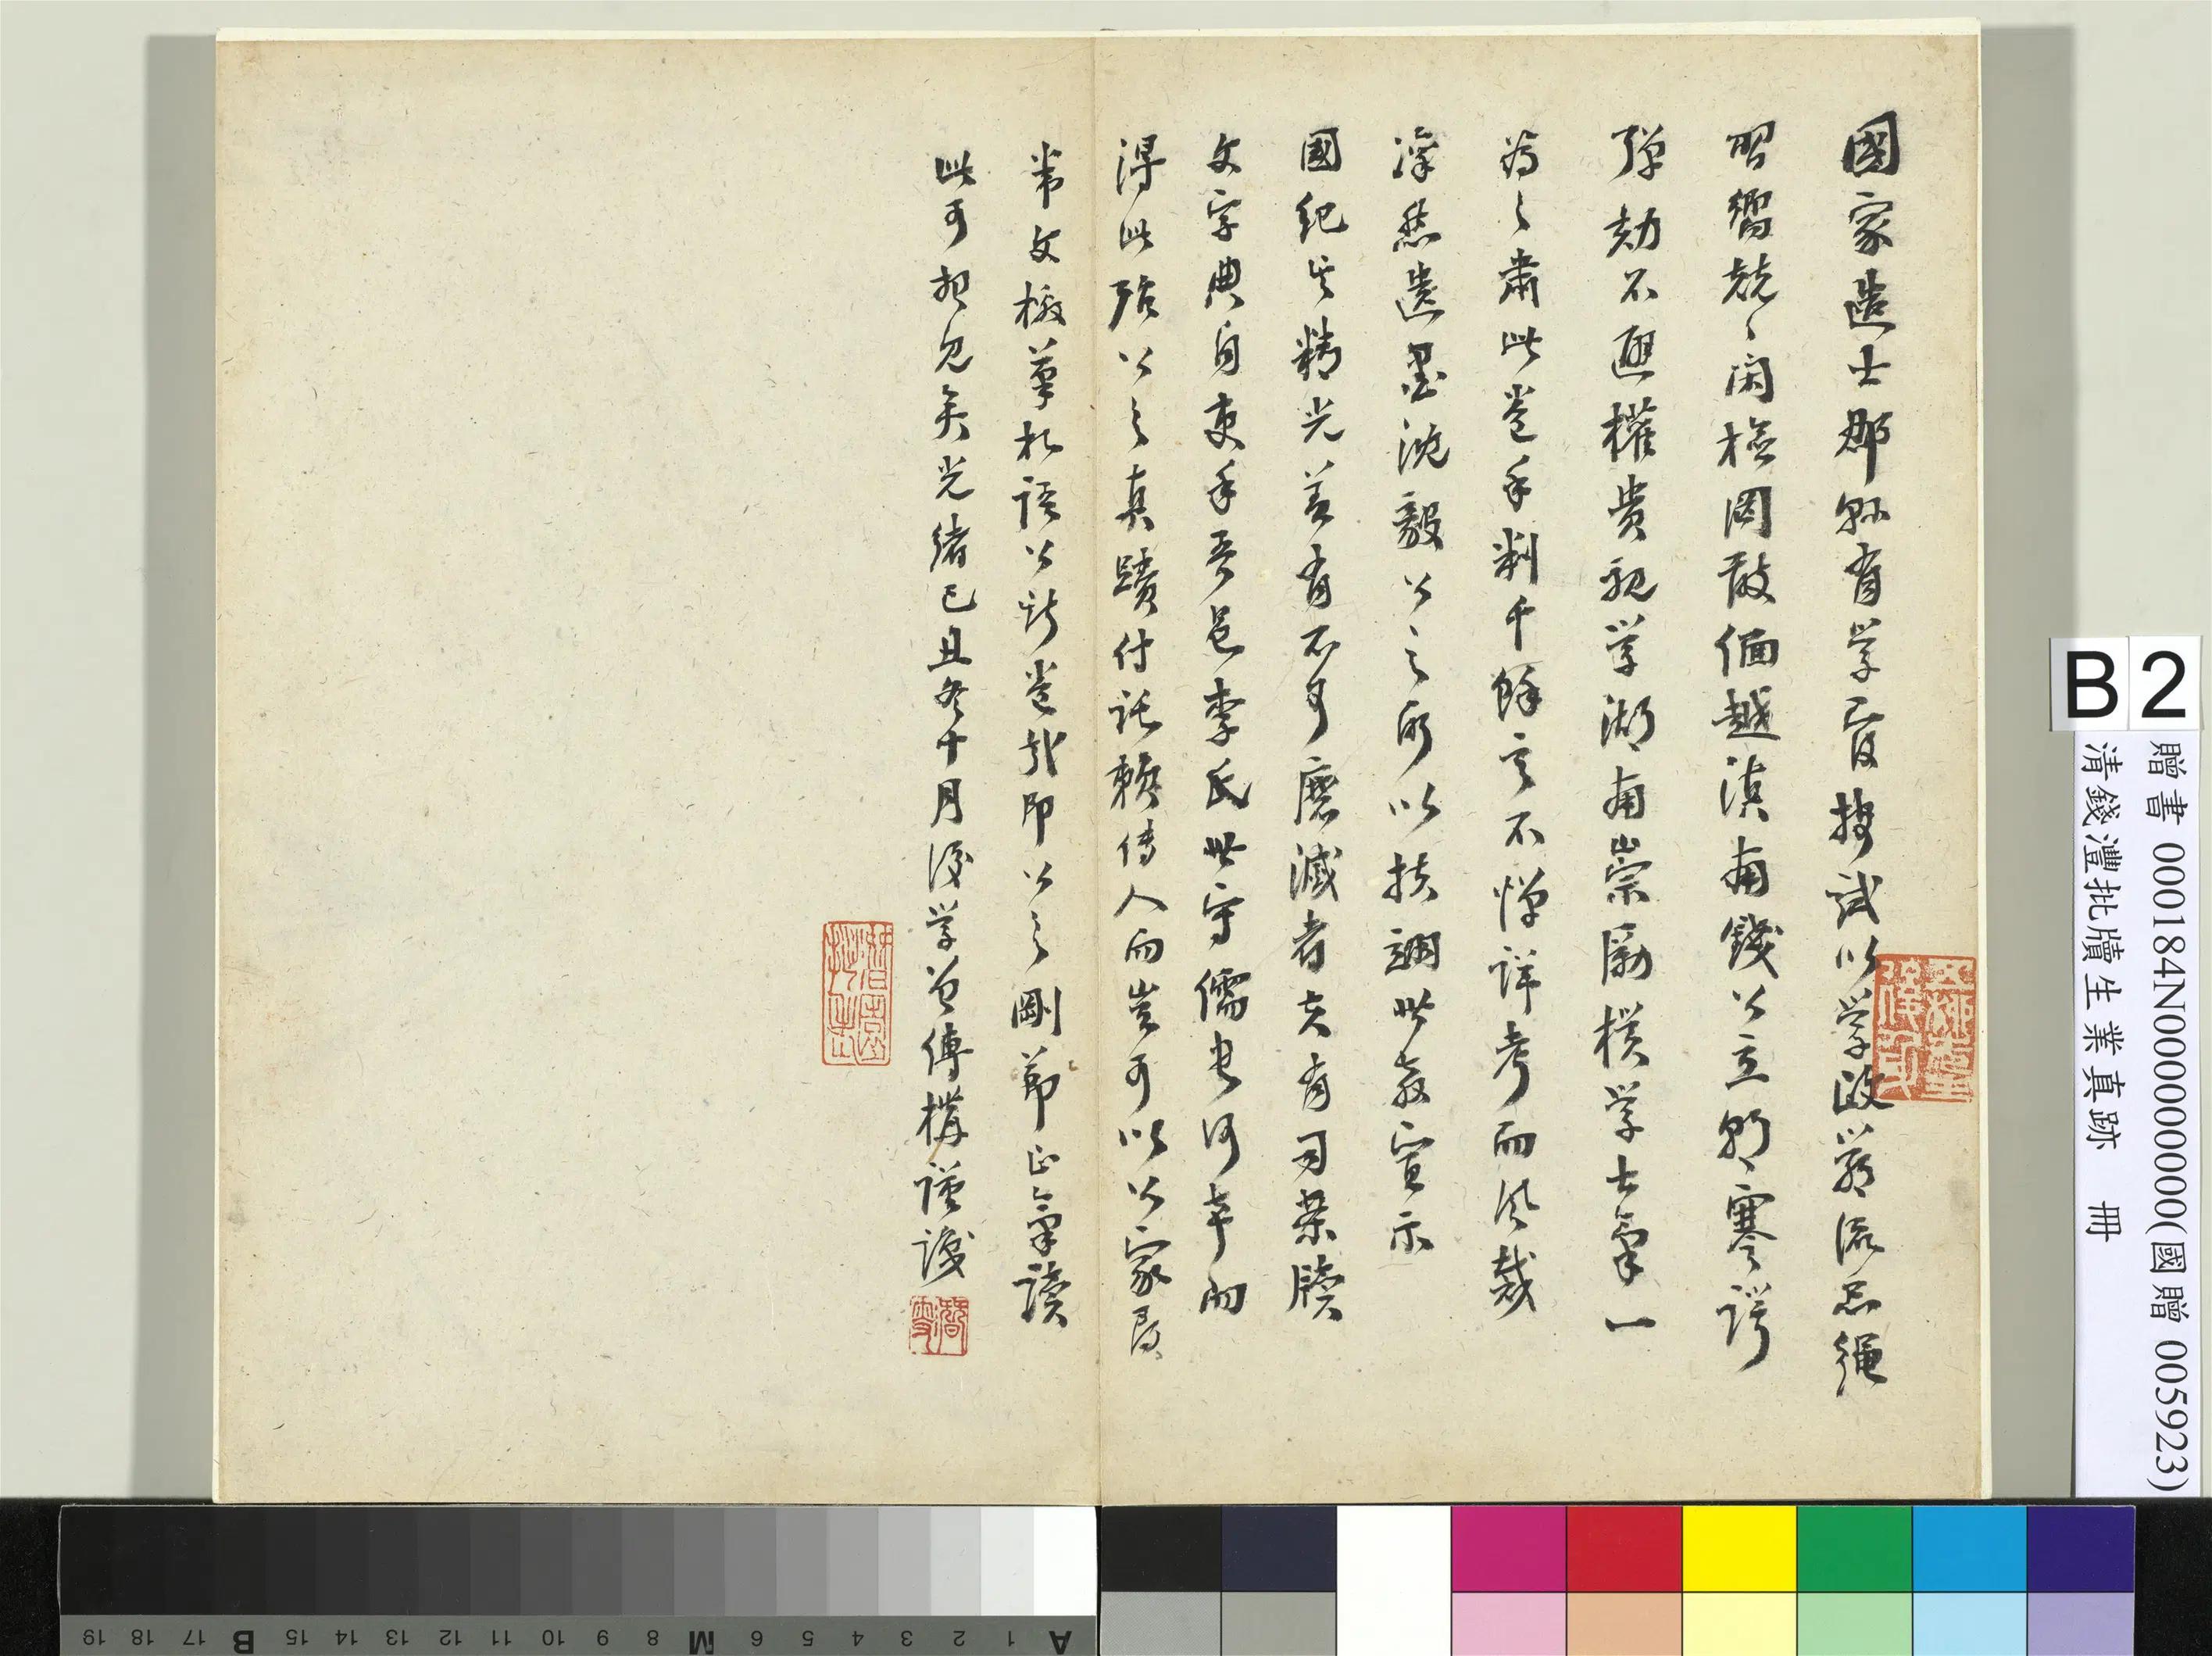 國家造士郡縣有學官投試以學政嚴流品繩
習嚮兢兢閑檢罔敢偭越滇南錢公立朝寒諤
彈劾不避權貴視學湖南崇勵樸學士氣一
為之肅此卷手判千餘言不憚詳考而風裁
凜然遺墨沈毅公之所以扶翊世教宣示
國紀其精光蓋有不可磨滅者夫有司案牘
文字典自吏手吾邑李氏世守儒史何幸而
得此殆公之真蹟付託賴傳人而豈可以公家尋
常文檄草杙語公訢卷哉即公之剛節正氣讀
此可想見矣光緒己丑冬十月後學曾傳樺謹識
B2
贈書 000184N000000000(國贈 005923)
清錢灃批牘生業真跡 冊
A 1 2 3 4 5 6 M 8 9 10 11 12 13 14 15 B 17 18 19